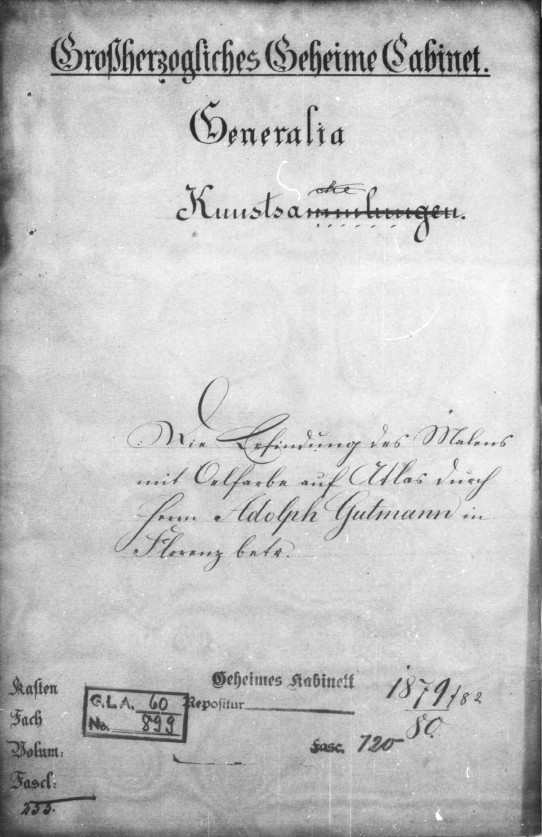 Großherzogliches Geheime Cabinet.
Generalia
che
Kunstsammlungen.
Die Erfindung des Malens
mit Oelfarbe auf Atlas durch
Herrn Adolph Gutmann in
Florenz betr.
Geheimes Kabinett
Repositur
Fasc. 720
1879/82
80.
Kasten
Fach
Volum:
Fascl:
G.L.A. 60
No. 899